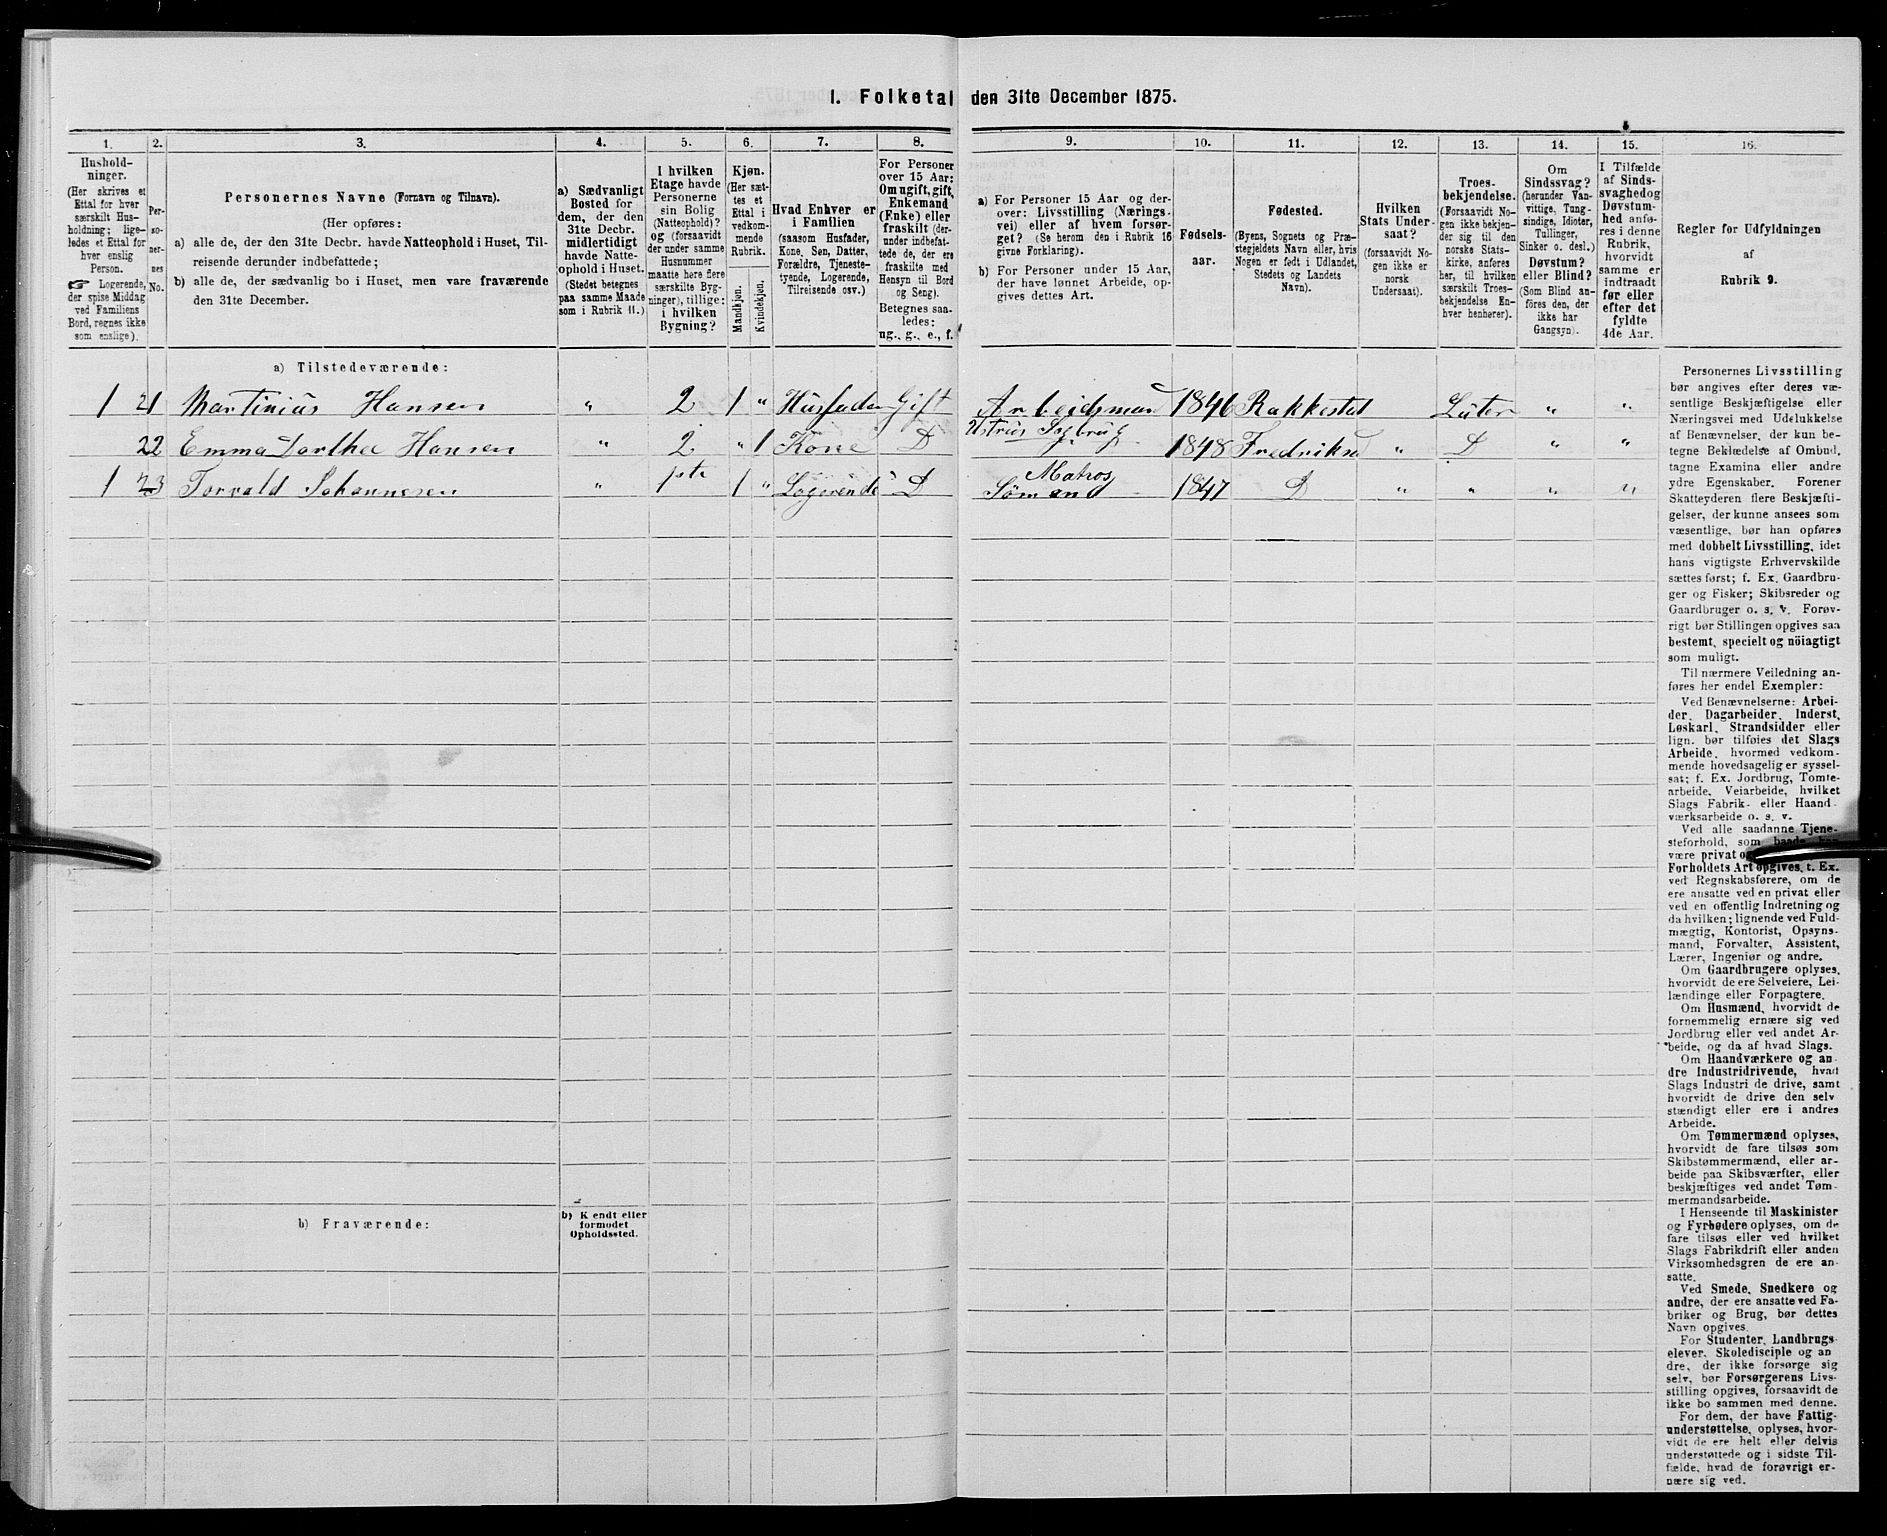 I. Folketal den 31te December 1875.
1. 2. 3. 4. 5. 6. 7. 8. 9. 10. 11. 12. 13. 14. 15. 16.
Hushold-
ninger.
(Her skrives et
Ettal for hver
særskilt Hus-
holdning; lige-
ledes et Ettal for
hver enslig
Person.
☞ Logerende,
der spise Middag
ved Familiens
Bord, regnes ikke
som enslige).
Per-
so-
ner-
nes
No.
Personernes Navne (Fornavn og Tilnavn).
(Her opføres:
a) alle de, der den 31te Decbr. havde Natteophold i Huset, Til-
reisende derunder indbefattede;
b) alle de, der sædvanlig bo i Huset, men vare fraværende
den 31te December.
a) Sædvanligt
Bosted for
dem, der den
31te Decbr.
midlertidigt
havde Natte-
ophold i Huset.
(Stedet betegnes
paa samme Maade
som i Rubrik 11.)
I hvilken
Etage havde
Personerne
sin Bolig
(Natteophold)?
og (forsaavidt
der under samme
Husnummer
maatte høre flere
særskilte Byg-
ninger), tillige:
i hvilken
Bygning?
Kjøn.
(Her sæt-
tes et
Ettal i
vedkom-
mende
Rubrik.
Mandkjøn.
Kvindekjøn.
Hvad Enhver er
i Familien
(saasom Husfader,
Kone, Søn, Datter,
Forældre, Tjeneste-
tyende, Logerende,
Tilreisende osv.)
For Personer
over 15 Aar:
Om ugift, gift,
Enkemand
(Enke) eller
fraskilt (der-
under indbefat-
tede de, der ere
fraskilte med
Hensyn til Bord
og Seng).
Betegnes saa-
ledes:
ug., g., e., f.
a) For Personer 15 Aar og der-
over: Livsstilling (Nærings-
vei) eller af hvem forsør-
get? (Se herom den i Rubrik 16
givne Forklaring).
b) For Personer under 15 Aar,
der have lønnet Arbeide, op-
gives dettes Art.
Fødsels-
aar.
Fødested.
(Byens, Sognets og Præ-
stegjeldets Navn eller, hvis
Nogen er født i Udlandet,
Stedets og Landets
Navn).
Hvilken
Stats Under-
saat?
(forsaavidt No-
gen ikke er
norsk
Undersaat).
Troes-
bekjendelse.
(Forsaavidt No-
gen ikke bekjen-
der sig til den
norske Stats-
kirke, anføres
her, til hvilken
særskilt Troes-
bekjendelse En-
hver henhører).
Om
Sindssvag?
(herunder Van-
vittige, Tung-
sindige, Idioter,
Tullinger,
Sinker o. desl.)
Døvstum?
eller Blind?
(Som Blind an-
føres den, der
ikke har
Gangsyn).
I Tilfælde
af Sinds-
svaghed og
Døvstum-
hed anfø-
res i denne
Rubrik,
hvorvidt
samme er
indtraadt
før eller
efter det
fyldte
4de Aar.
Regler for Udfyldningen
af
Rubrik 9.
a) Tilstedeværende:
1 21 Martinius Hansen " 2 1 " Husfader Gift Arbeidsmand 1846 Rakkestad Luter " "
22 Emma Dorthea Hansen " 2 " 1 Kone D 1848 Fredriks " D " "
1 23 Torvald Johannesen " 1ste 1 " Logerende D Matros
Sømand 1847 D " " " "
b) Fraværende:
b) Kendt eller
formodet
Opholdssted.
Personernes Livsstilling
bør angives efter deres væ-
sentlige Beskjæftigelse eller
Næringsvei med Udelukkelse
af Benævnelser, der kun be-
tegne Beklædelse af Ombud,
tagne Examina eller andre
ydre Egenskaber. Forener
Skatteyderen flere Beskjæfti-
gelser, der kunne ansees som
væsentlige, bør han opføres
med dobbelt Livsstilling, idet
hans vigtigste Erhvervskilde
sættes først; f. Ex. Gaardbru-
ger og Fisker; Skibsreder og
Gaardbruger o. s. v. Forøv-
rigt bør Stillingen opgives saa
bestemt, specielt og nöiagtigt
som muligt.
Til nærmere Veiledning an-
føres her endel Exempler:
Ved Benævnelserne: Arbei-
der, Dagarbeider, Inderst,
Løskarl, Strandsidder eller
lign. bør tilføies det Slags
Arbeide, hvormed vedkom-
mende hovedsagelig er syssel-
sat; f. Ex. Jordbrug, Tomte-
arbeide, Veiarbeide, hvilket
Slags Fabrik- eller Haand-
værksarbeide o. s. v.
Ved alle saadanne Tjene-
steforhold, som baade
være privat
Forholdets Art opgives, t. Ex.
ved Regnskabsførere, om de
ere ansatte ved en privat eller
ved en offentlig Indretning og
da hvilken; lignende ved Fuld-
mægtig, Kontorist, Opsyns-
mand, Forvalter, Assistent,
Lærer, Ingeniør og andre.
Om Gaardbrugere oplyses,
hvorvidt de ere Selveiere, Lei-
lændinge eller Forpagtere.
Om Husmænd, hvorvidt de
fornemmelig ernære sig ved
Jordbrug eller ved andet Ar-
beide, og da af hvad Slags.
Om Haandværkere og an-
dre Industridrivende, hvad
Slags Industri de drive, samt
hvorvidt de drive den selv
stændigt eller ere i andres
Arbeide.
Om Tømmermænd oplyses,
hvorvidt de fare tilsøs som
Skibstømmermænd, eller ar-
beide paa Skibsværfter, eller
beskjæftiges ved andet Tøm-
mermandsarbeide.
I Henseende til Maskinister
og Fyrbødere oplyses, om de
fare tilsøs eller ved hvilket
Slags Fabrikdrift eller anden
Virksomhedsgren de ere an-
satte.
Ved Smede, Snedkere og
andre, der ere ansatte ved Fa-
briker og Brug, bør dettes
Navn opgives.
For Studenter, Landbrugs
elever, Skoledisciple og an
dre, der ikke forsørge sig
selv, bør Forsørgerens Livs-
stilling opgives, forsaavidt de
ikke bo sammen med denne.
For dem, der have Fattig-
understøttelse, oplyses, hvor-
vidt de ere helt eller delvis
understøttede og i sidste Til-
fælde, hvad de forøvrigt er-
nære sig ved.